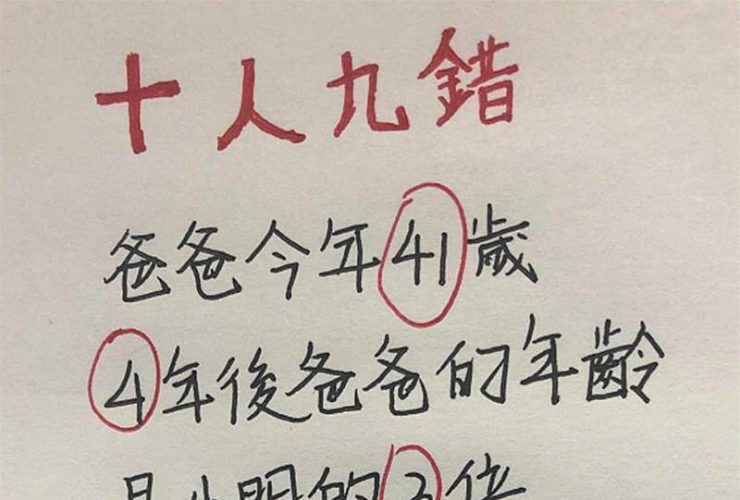 十人九錯
爸爸今年41歲
4年後爸爸的年齡
是小明的3倍